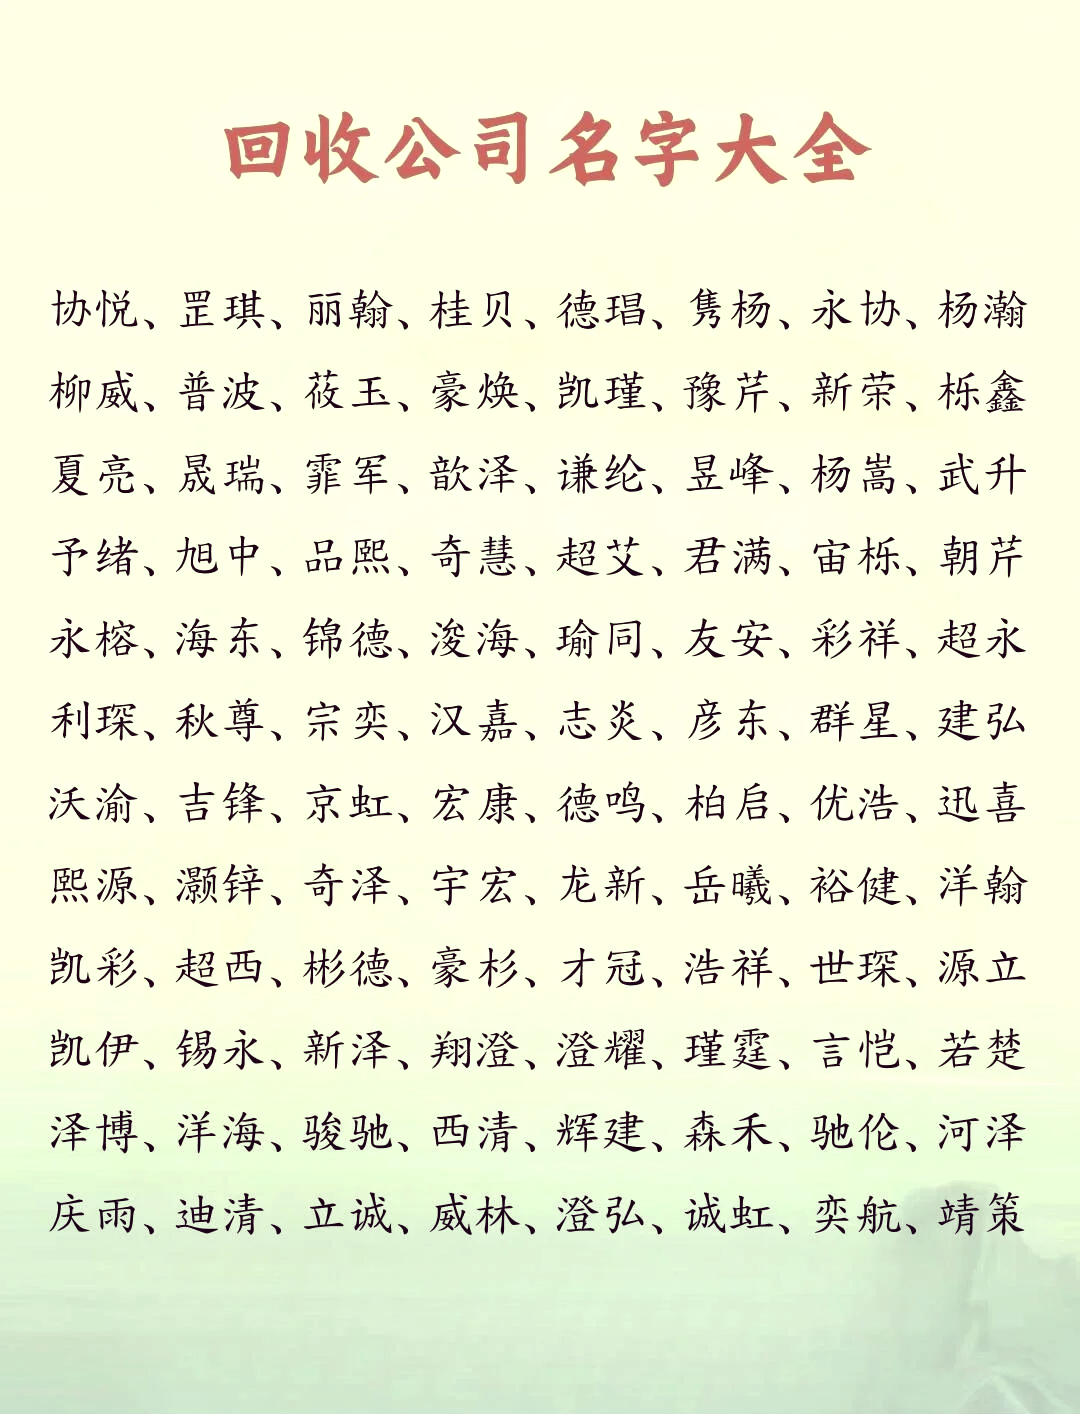 回收公司名字大全
协悦、罡琪、丽翰、桂贝、德琩、隽杨、永协、杨瀚
柳威、普波、莜玉、豪焕、凯瑾、豫芹、新荣、栎鑫
夏亮、晟瑞、霏军、歆泽、谦纶、昱峰、杨嵩、武升
予绪、旭中、品熙、奇慧、超艾、君满、宙栎、朝芹
永榕、海东、锦德、浚海、瑜同、友安、彩祥、超永
利琛、秋尊、宗奕、汉嘉、志炎、彦东、群星、建弘
沃渝、吉锋、京虹、宏康、德鸣、柏启、优浩、迅喜
熙源、灏锌、奇泽、宇宏、龙新、岳曦、裕健、洋翰
凯彩、超西、彬德、豪杉、才冠、浩祥、世琛、源立
凯伊、锡永、新泽、翔澄、澄耀、瑾霆、言恺、若楚
泽博、洋海、骏驰、西清、辉建、森禾、驰伦、河泽
庆雨、迪清、立诚、威林、澄弘、诚虹、奕航、靖策